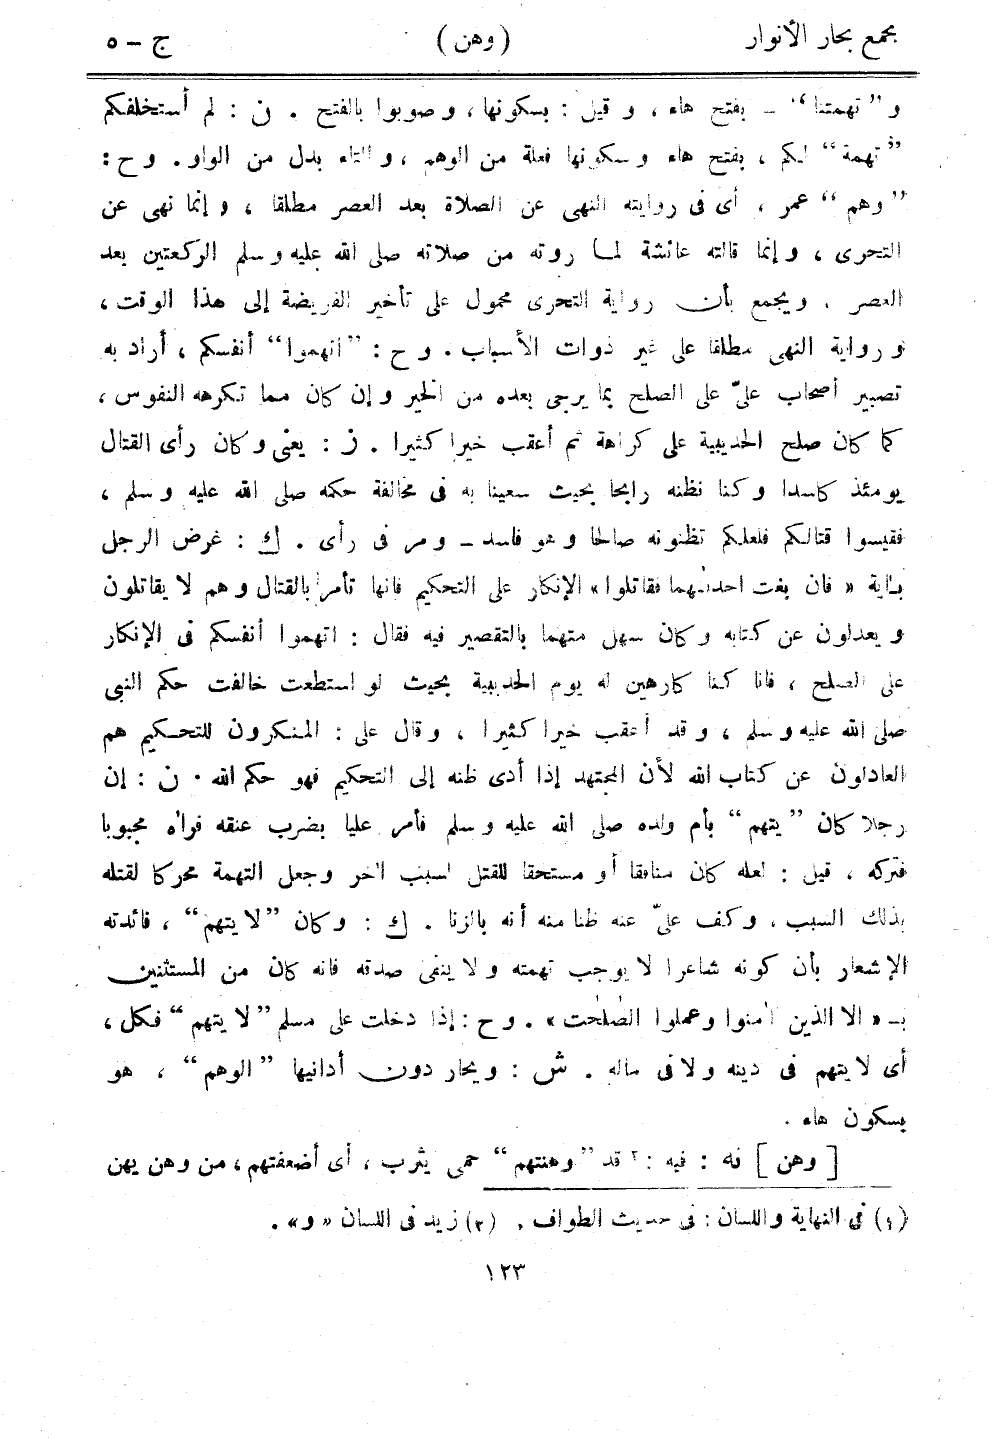 مجمع بحار الأنوار (وهن) ج – ٥
و ”تهمتنا“ – بفتح هاء ، و قيل : بسكونها ، و صوبوا بالفتح . ن : لم أستخلفكم
”تهمة“ لكم ، بفتح هاء و سكونها فعلة من الوهم ، و التاء بدل من الواو . و ح :
”وهم“ عمر ، أى فى روايته النهى عن الصلاة بعد العصر مطلقا ، و إنما نهى عن
التحرى ، و إنما قالته عائشة لما روته من صلاته صلى الله عليه و سلم الركعتين بعد
العصر . ويجمع بأن رواية التحرى محمول على تأخير الفريضة إلى هذا الوقت ،
و رواية النهى مطلقا على غير ذوات الأسباب . و ح : ”اتهموا“ أنفسكم ، أراد به
تصبير أصحاب علىّ على الصلح بما يرجى بعده من الخير و إن كان مما تكرهه النفوس ،
كما كان صلح الحديبية على كراهة ثم أعقب خيرا كثيرا . ز : يعنى و كان رأى القتال
يومئذ كاسدا و كنا نظنه رابحا بحيث سعينا به فى مخالفة حكمه صلى الله عليه و سلم ،
فقيسوا قتالكم فلعلكم تظنونه صالحا و هو فاسد – و مر فى رأى . ك : غرض الرجل
بآية « فان بغت احدٰىهما فقاتلوا» الإنكار على التحكيم فانها تأمر بالقتال و هم لا يقاتلون
و يعدلون عن كتابه و كان سهل متهما بالتقصير فيه فقال : اتهموا أنفسكم فى الإنكار
على الصلح ، فانا كنا كارهين له يوم الحديبية بحيث لو استطعت خالفت حكم النبى
صلى الله عليه و سلم ، و قد أعقب خيرا كثيرا ، و قال على : المنكرون للتحكيم هم
العادلون عن كتاب الله لأن المجتهد إذا أدى ظنه إلى التحكيم فهو حكم الله . ن : إن
رجلا كان ”يتهم“ بأم ولده صلى الله عليه و سلم فأمر عليا بضرب عنقه فرآه مجبوبا
فتركه ، قيل : لعله كان منافقا أو مستحقا للقتل لسبب آخر و جعل التهمة محركا لقتله
بذلك السبب ، و كف علىّ عنه ظنا منه أنه بالزنا . ك : و كان ”لا يتهم“ ، فائدته
الإشعار بأن كونه شاعرا لا يوجب تهمته و لا ينفى صدقه فانه كان من المستثنين
بـ « الا الذين اٰمنوا و عملوا الصٰلحٰت» . و ح : إذا دخلت على مسلم ”لا يتهم“ فكل ،
أى لا يتهم فى دينه و لا فى ماله . ش : و يحار دون أدانيها ”الوهم“ ، هو
بسكون هاء .
[ وهن ] نه : فيه : ٢ قد ”وهنتهم“ حمى يثرب ، أى أضعفتهم ، من وهن يهن
(١) فى النهاية و اللسان : فى حديث الطواف . (٢) زيد فى اللسان « و» .
١٢٣